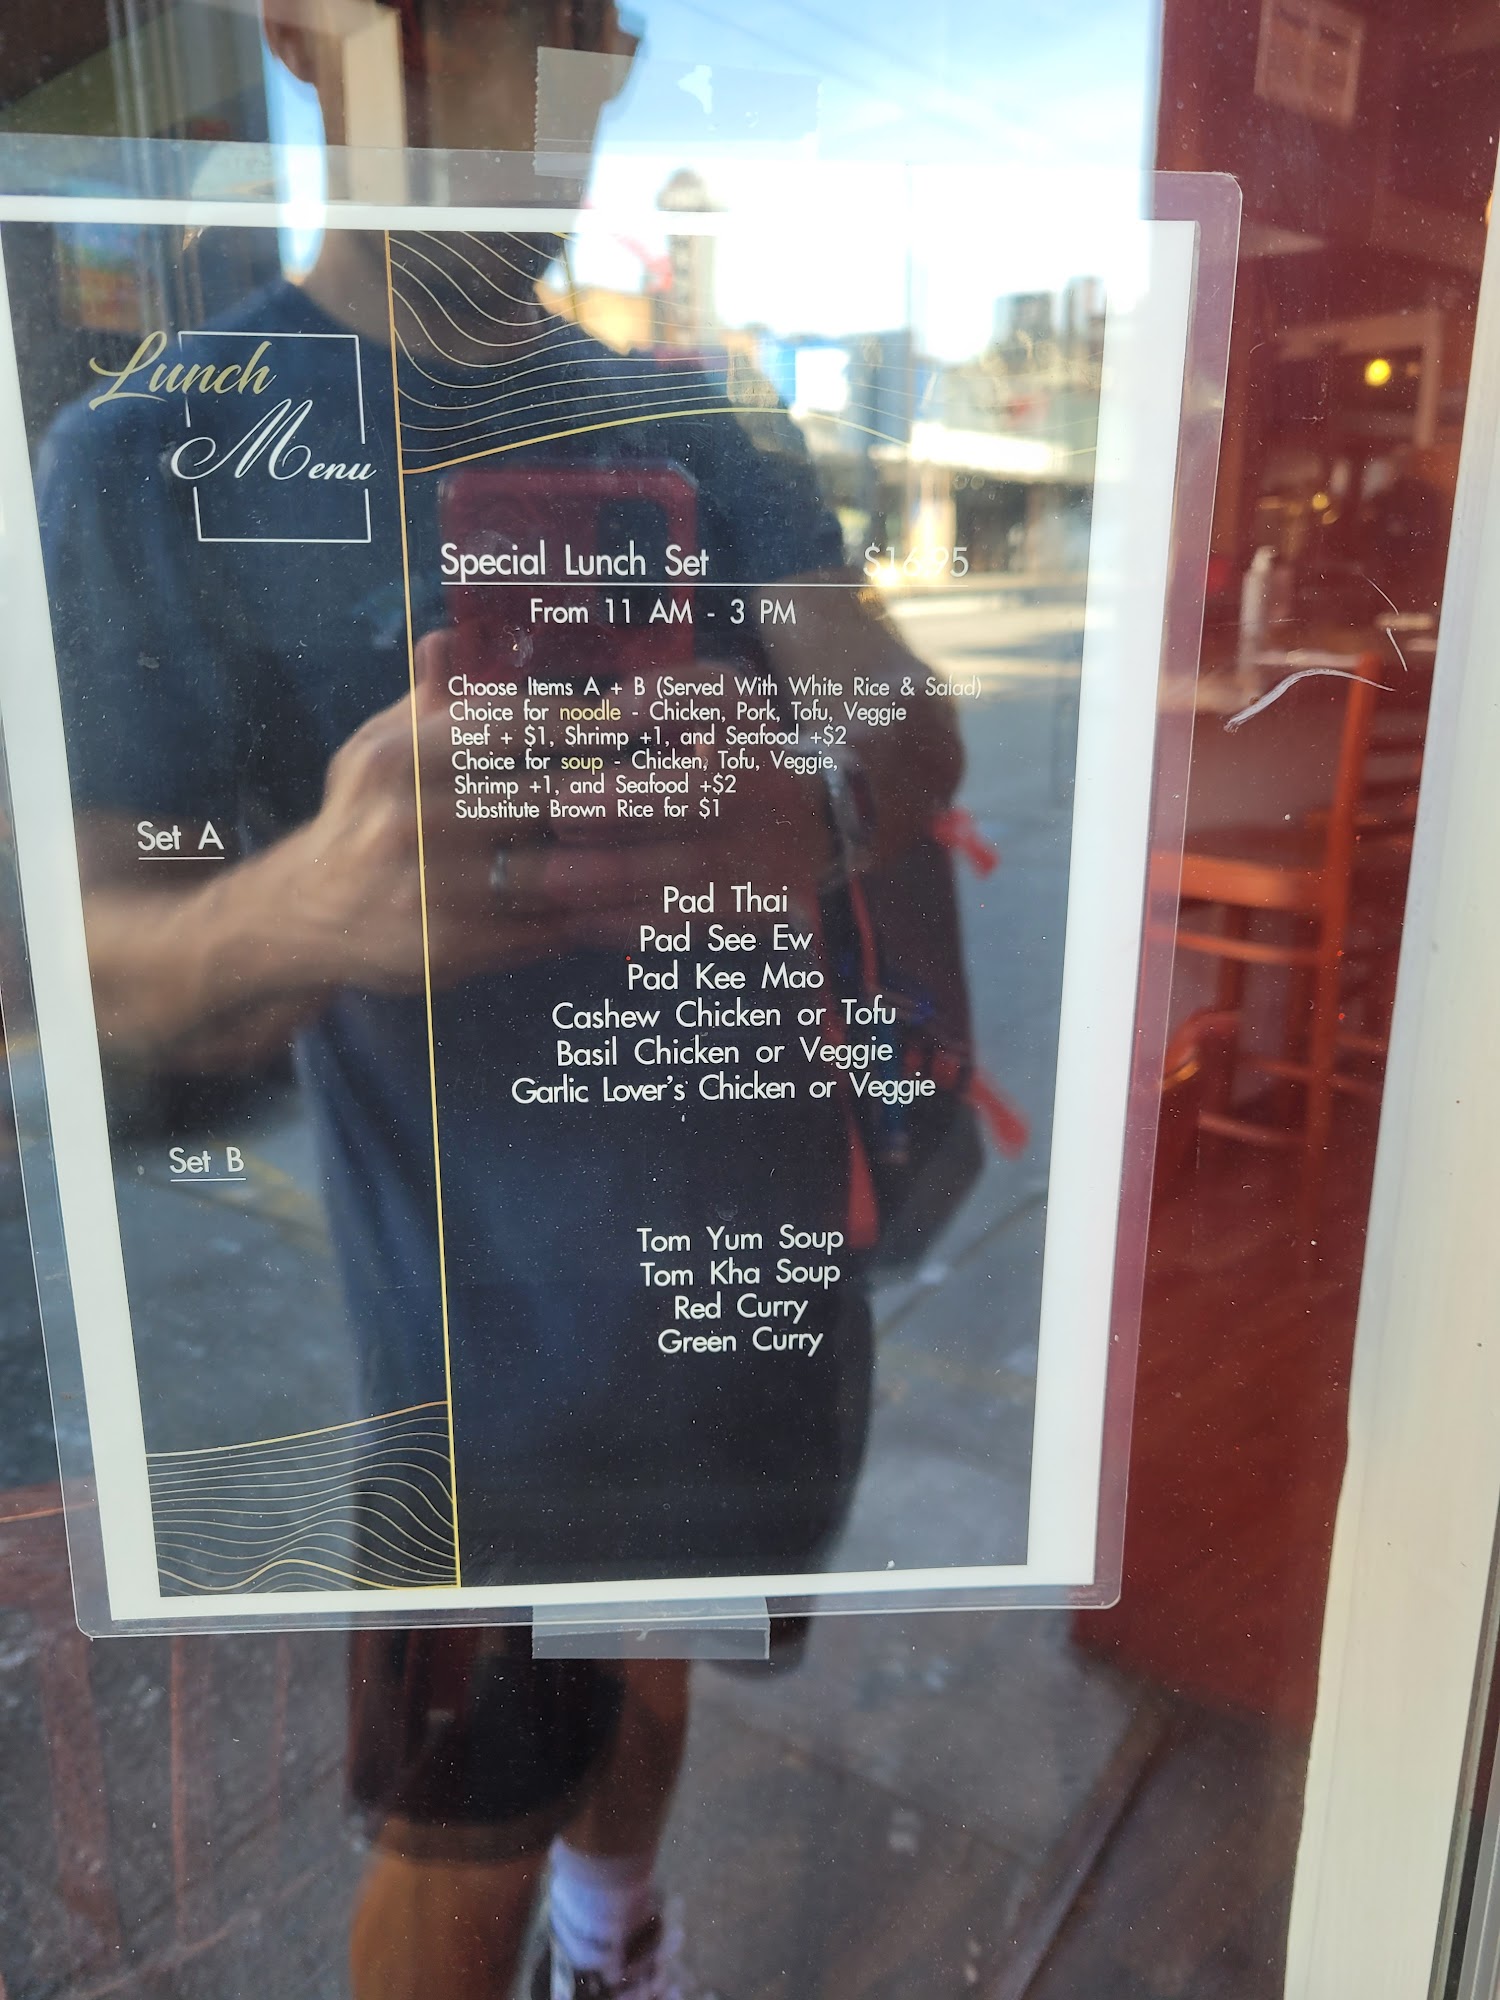 Lunch
Menu
Special Lunch Set $16.95
From 11 AM - 3 PM
Choose Items A + B (Served With White Rice & Salad)
Choice for noodle - Chicken, Pork, Tofu, Veggie
Beef + $1, Shrimp +1, and Seafood +$2
Choice for soup - Chicken, Tofu, Veggie,
Shrimp +1, and Seafood +$2
Substitute Brown Rice for $1
Set A
Pad Thai
Pad See Ew
Pad Kee Mao
Cashew Chicken or Tofu
Basil Chicken or Veggie
Garlic Lover's Chicken or Veggie
Set B
Tom Yum Soup
Tom Kha Soup
Red Curry
Green Curry